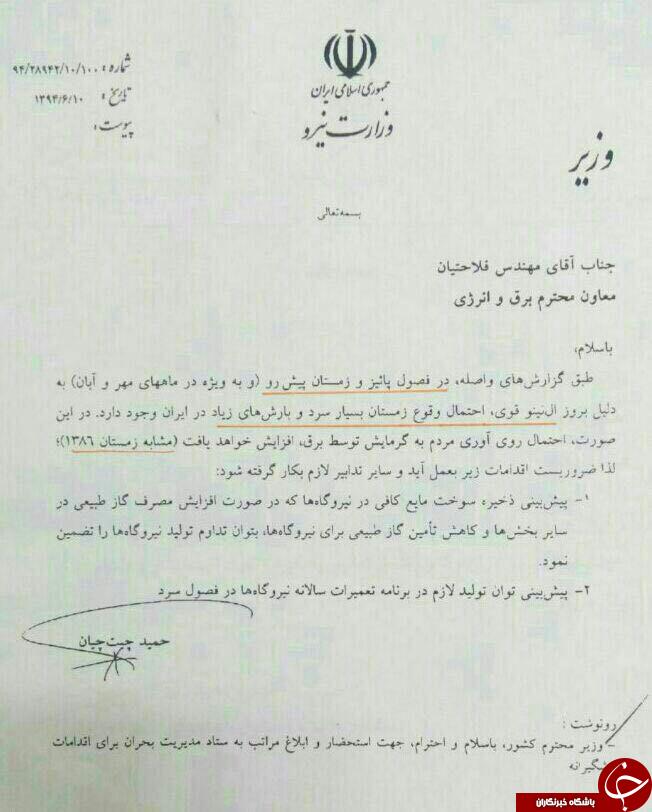 جمهوری اسلامی ایران
وزارت نیرو
شماره : ۹۴/۲۸۹۴۲/۱۰/۱۰۰
تاریخ : ۱۳۹۴/۶/۱۰
پیوست :
وزیر
بسمه تعالی
جناب آقای مهندس فلاحتیان
معاون محترم برق و انرژی
باسلام،
طبق گزارش‌های واصله، در فصول پائیز و زمستان پیش رو (و به ویژه در ماههای مهر و آبان) به
دلیل بروز ال‌نینو قوی، احتمال وقوع زمستان بسیار سرد و بارش‌های زیاد در ایران وجود دارد. در این
صورت، احتمال روی آوری مردم به گرمایش توسط برق، افزایش خواهد یافت (مشابه زمستان ۱۳۸۶)؛
لذا ضروریست اقدامات زیر بعمل آید و سایر تدابیر لازم بکار گرفته شود:
۱- پیش‌بینی ذخیره سوخت مایع کافی در نیروگاه‌ها که در صورت افزایش مصرف گاز طبیعی در
سایر بخش‌ها و کاهش تأمین گاز طبیعی برای نیروگاه‌ها، بتوان تداوم تولید نیروگاه‌ها را تضمین
نمود.
۲- پیش‌بینی توان تولید لازم در برنامه تعمیرات سالانه نیروگاه‌ها در فصول سرد
حمید چیت‌چیان
رونوشت :
- وزیر محترم کشور، باسلام و احترام، جهت استحضار و ابلاغ مراتب به ستاد مدیریت بحران برای اقدامات
باشگاه خبرنگاران